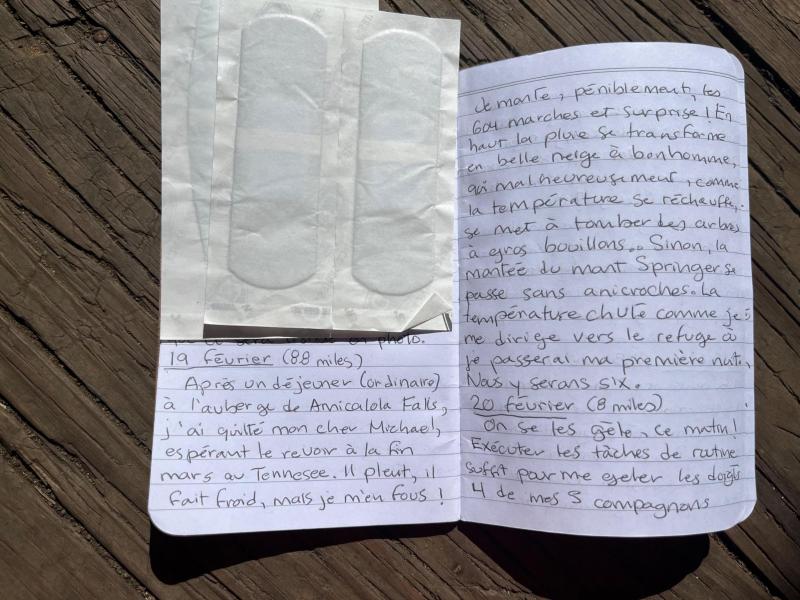 en photo.
19 février (8.8 miles)
Après un déjeuner (ordinaire)
à l'auberge de Amicalola Falls,
j'ai quitté mon cher Michael,
espérant le revoir à la fin
mars au Tennesee. Il pleut, il
fait froid, mais je m'en fous !
Je monte, péniblement, les
604 marches et surprise ! En
haut la pluie se transforme
en belle neige à bonhomme,
qui malheureusement, comme
la température se réchauffe,
se met à tomber des arbres
à gros bouillons... Sinon, la
montée du mont Springer se
passe sans anicroches. La
température chute comme je
me dirige vers le refuge à
je passerai ma première nuit.
Nous y serons six.
20 février (8 miles)
On se les gèle, ce matin !
Exécuter les tâches de routine
suffit pour me geler les doigts
4 de mes 5 compagnons